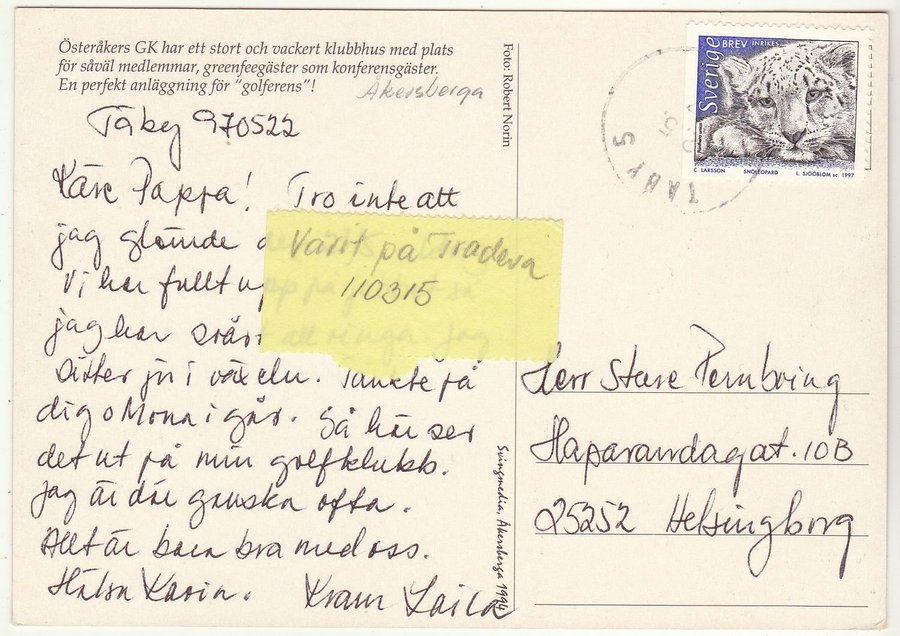 Österåkers GK har ett stort och vackert klubbhus med plats
för såväl medlemmar, greenfeegäster som konferensgäster.
En perfekt anläggning för "golferens"!
Åkersberga
Täby 970522
Käre Pappa! Tro inte att
jag glömde
Vi har fullt upp på
jag har svårt att ringa. Jag
sitter ju i växeln. Tänkte på
dig o Mona i går. Så här ser
det ut på min golfklubb.
Jag är där ganska ofta.
Allt är bara bra med oss.
Hälsa Karin. Kram Laila
Varit på Tradera
110315
Foto: Robert Norin
Svingmedia, Åkersberga 1994
Sverige BREV INRIKES
C. LARSSON SNÖLEOPARD L. SJÖÖBLOM sc. 1997
TÄBY 5
Herr Sture Pernbring
Haparandagat. 10B
25252 Helsingborg